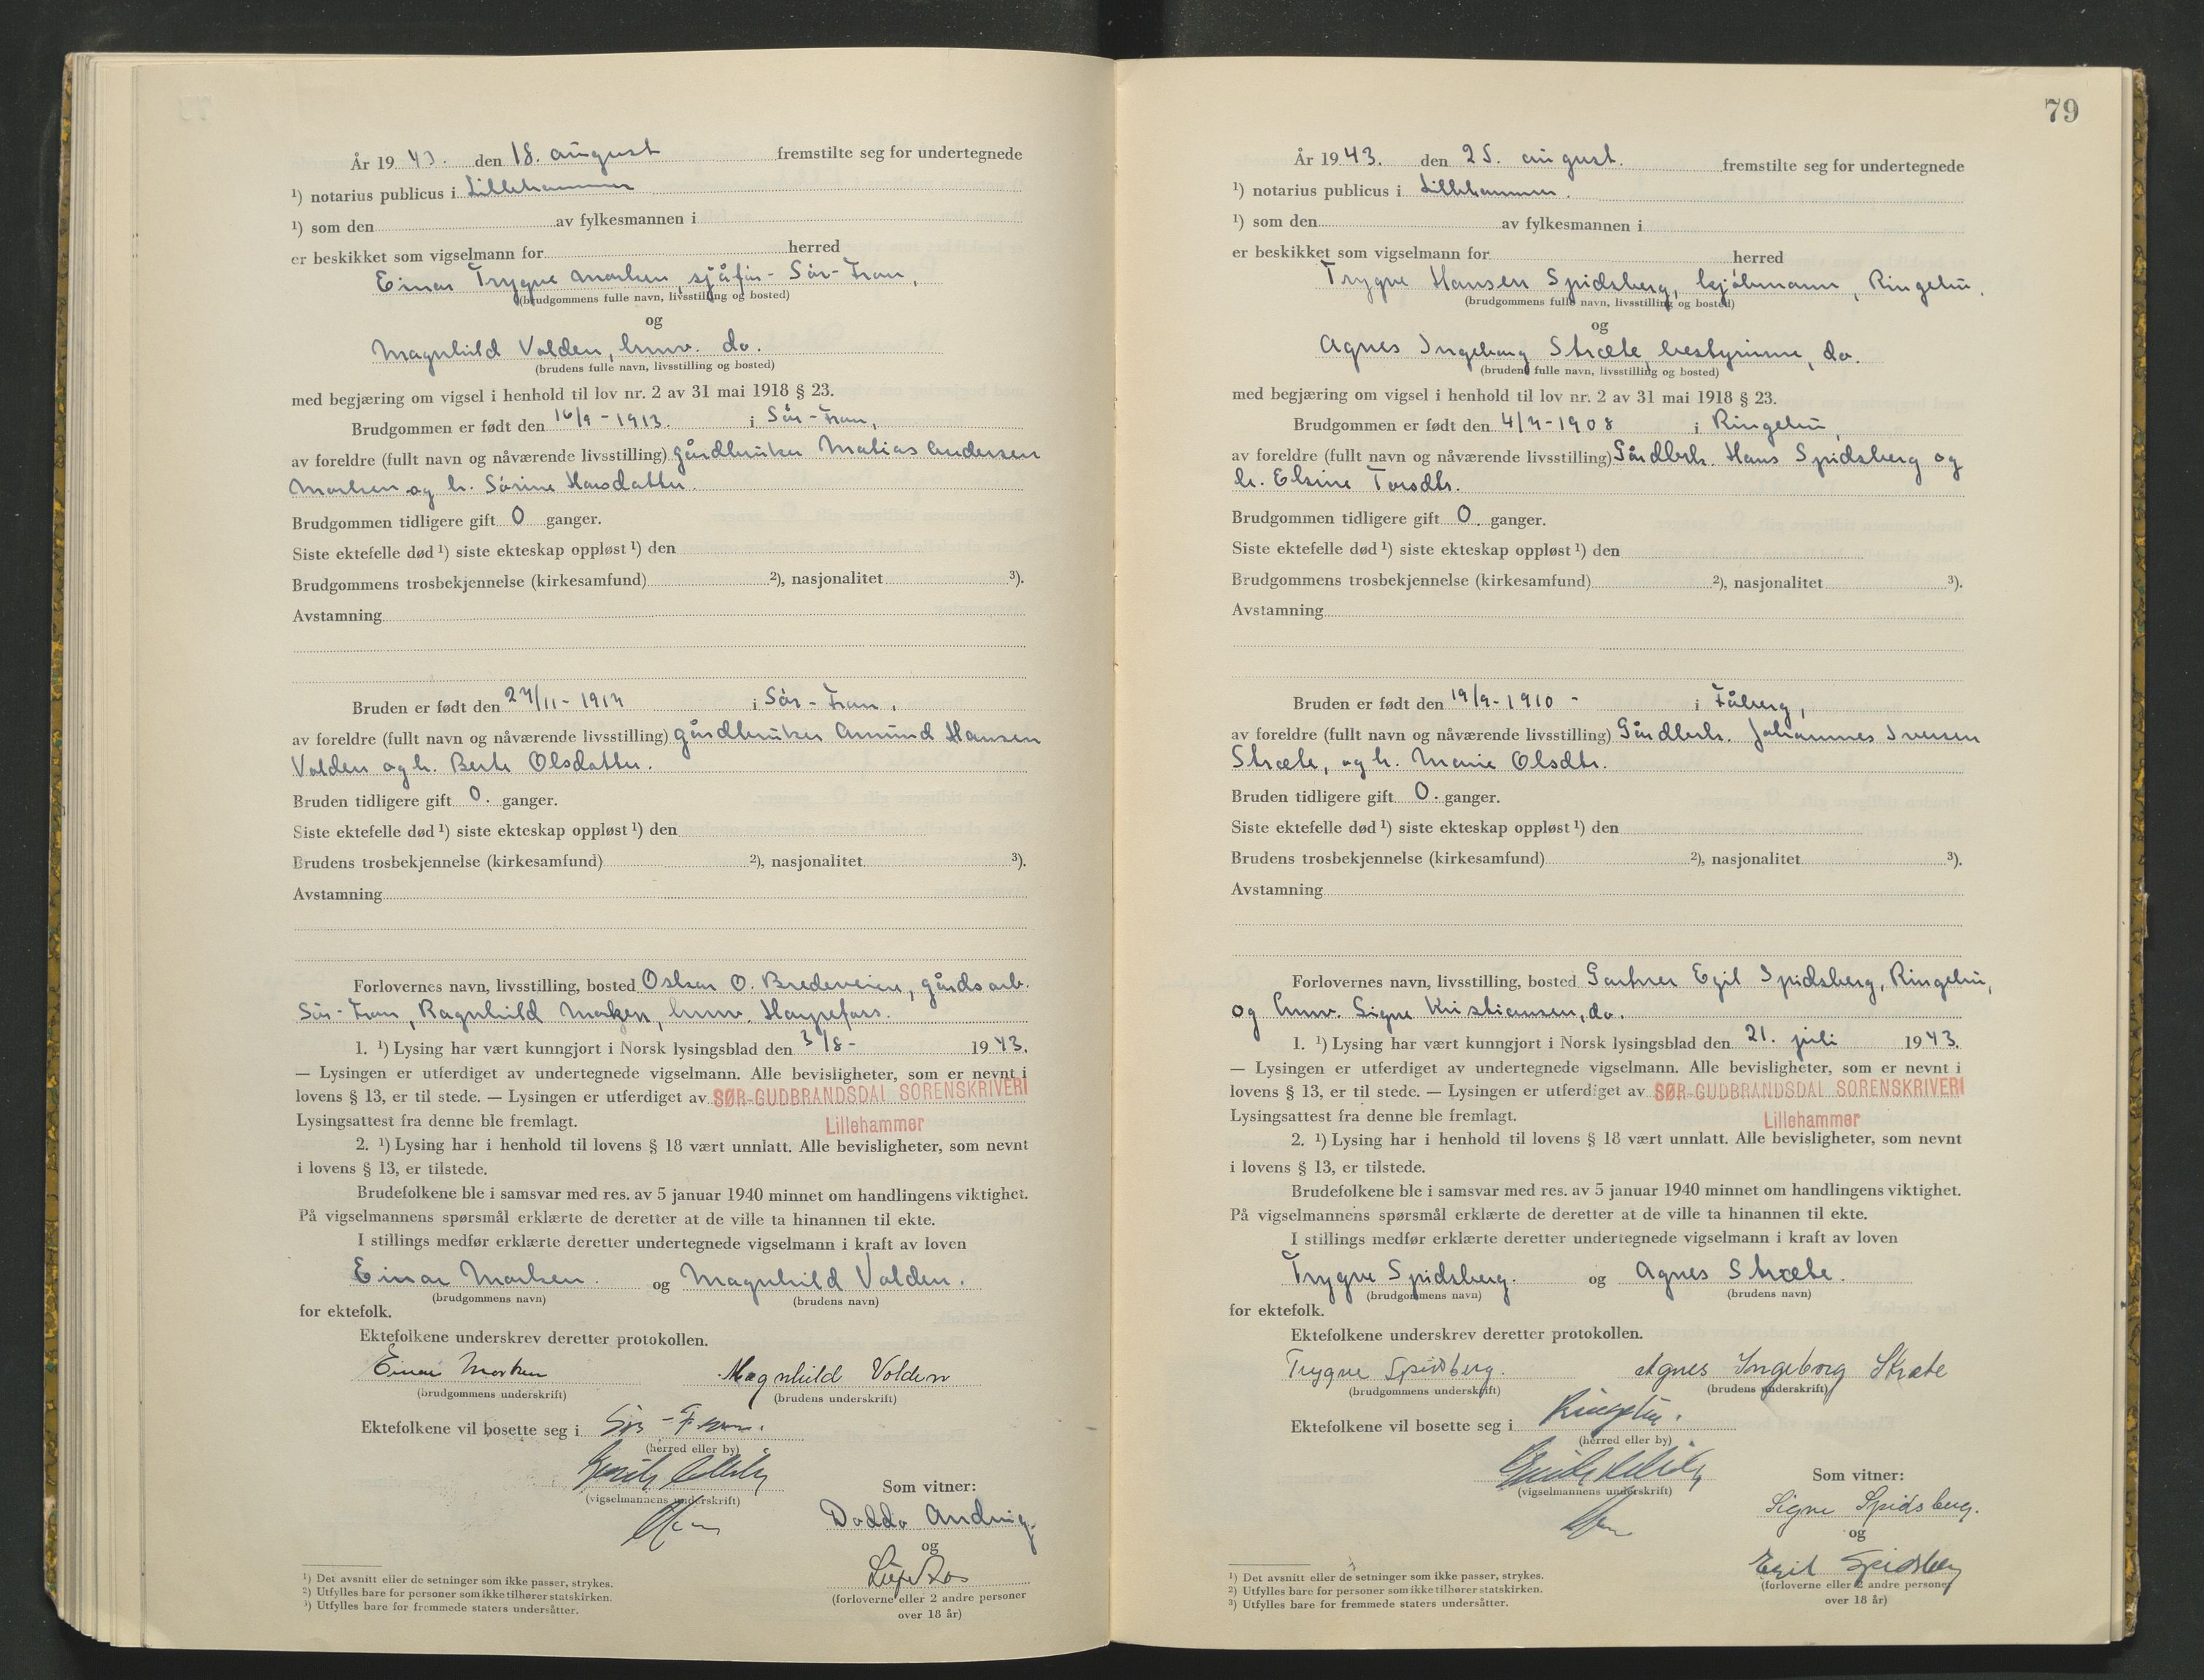 År 19 43. den 18. august fremstilte seg for undertegnede
¹) notarius publicus i Lillehammer
¹) som den av fylkesmannen i
er beskikket som vigselmann for herred
Einar Trygve Morken, sjåfør - Sør-Fron,
(brudgommens fulle navn, livsstilling og bosted)
og
Magnhild Volden, husv. do.
(brudens fulle navn, livsstilling og bosted)
med begjæring om vigsel i henhold til lov nr. 2 av 31 mai 1918 § 23.
Brudgommen er født den 16/9 - 1913. i Sør-Fron,
av foreldre (fullt navn og nåværende livsstilling) gårdbruker Matias Andersen
Morken og h. Sørine Hansdatter.
Brudgommen tidligere gift 0 ganger.
Siste ektefelle død ¹) siste ekteskap oppløst ¹) den
Brudgommens trosbekjennelse (kirkesamfund) ²), nasjonalitet ³).
Avstamning
Bruden er født den 24/11 - 1914 i Sør-Fron.
av foreldre (fullt navn og nåværende livsstilling) gårdbruker Amund Hansen
Volden og h. Berte Olsdatter.
Bruden tidligere gift 0. ganger.
Siste ektefelle død ¹) siste ekteskap oppløst ¹) den
Brudens trosbekjennelse (kirkesamfund) ²), nasjonalitet ³).
Avstamning
Forlovernes navn, livsstilling, bosted Oskar O. Bredeveien, gårdsarb.
Sør-Fron, Ragnhild Morken, husv. Harpefoss.
1. ¹) Lysing har vært kunngjort i Norsk lysingsblad den 3/8 - 19 43.
— Lysingen er utferdiget av undertegnede vigselmann. Alle bevisligheter, som er nevnt i
lovens § 13, er til stede. — Lysingen er utferdiget av SØR-GUDBRANDSDAL SORENSKRIVERI
Lysingsattest fra denne ble fremlagt. Lillehammer
2. ¹) Lysing har i henhold til lovens § 18 vært unnlatt. Alle bevisligheter, som nevnt
i lovens § 13, er tilstede.
Brudefolkene ble i samsvar med res. av 5 januar 1940 minnet om handlingens viktighet.
På vigselmannens spørsmål erklærte de deretter at de ville ta hinannen til ekte.
I stillings medfør erklærte deretter undertegnede vigselmann i kraft av loven
Einar Morken. og Magnhild Volden.
(brudgommens navn) (brudens navn)
for ektefolk.
Ektefolkene underskrev deretter protokollen.
Einar Morken Magnhild Volden
(brudgommens underskrift) (brudens underskrift)
Ektefolkene vil bosette seg i Sør-Fron.
(herred eller by)
(vigselmannens underskrift)
Som vitner:
Dodda
og
(forloverne eller 2 andre personer
over 18 år)
¹) Det avsnitt eller de setninger som ikke passer, strykes.
²) Utfylles bare for personer som ikke tilhører statskirken.
³) Utfylles bare for fremmede staters undersåtter.
79
År 19 43. den 25. august. fremstilte seg for undertegnede
¹) notarius publicus i Lillehammer.
¹) som den av fylkesmannen i
er beskikket som vigselmann for herred
Trygve Hansen Spidsberg, kjøbmann, Ringebu.
(brudgommens fulle navn, livsstilling og bosted)
og
Agnes Ingeborg Stræte, bestyrinne, do.
(brudens fulle navn, livsstilling og bosted)
med begjæring om vigsel i henhold til lov nr. 2 av 31 mai 1918 § 23.
Brudgommen er født den 4/4 - 1908 i Ringebu,
av foreldre (fullt navn og nåværende livsstilling) Gårdbrk. Hans Spidsberg og
h. Elsine Torsdtr.
Brudgommen tidligere gift 0. ganger.
Siste ektefelle død ¹) siste ekteskap oppløst ¹) den
Brudgommens trosbekjennelse (kirkesamfund) ²), nasjonalitet ³).
Avstamning
Bruden er født den 19/9 - 1910 - i Fåberg,
av foreldre (fullt navn og nåværende livsstilling) Gårdbrk. Johannes Iversen
Stræte, og h. Marie Olsdtr.
Bruden tidligere gift 0. ganger.
Siste ektefelle død ¹) siste ekteskap oppløst ¹) den
Brudens trosbekjennelse (kirkesamfund) ²), nasjonalitet ³).
Avstamning
Forlovernes navn, livsstilling, bosted Gartner Egil Spidsberg, Ringebu,
og husv. Signe Kristiansen, do.
1. ¹) Lysing har vært kunngjort i Norsk lysingsblad den 21. juli 19 43.
— Lysingen er utferdiget av undertegnede vigselmann. Alle bevisligheter, som er nevnt i
lovens § 13, er til stede. — Lysingen er utferdiget av SØR-GUDBRANDSDAL SORENSKRIVERI
Lysingsattest fra denne ble fremlagt. Lillehammer
2. ¹) Lysing har i henhold til lovens § 18 vært unnlatt. Alle bevisligheter, som nevnt
i lovens § 13, er tilstede.
Brudefolkene ble i samsvar med res. av 5 januar 1940 minnet om handlingens viktighet.
På vigselmannens spørsmål erklærte de deretter at de ville ta hinannen til ekte.
I stillings medfør erklærte deretter undertegnede vigselmann i kraft av loven
Trygve Spidsberg. og Agnes Stræte.
(brudgommens navn) (brudens navn)
for ektefolk.
Ektefolkene underskrev deretter protokollen.
Trygve Spidsberg. Agnes Ingeborg Stræte
(brudgommens underskrift) (brudens underskrift)
Ektefolkene vil bosette seg i Ringebu.
(herred eller by)
(vigselmannens underskrift)
Som vitner:
Signe Spidsberg.
og
Egil Spidsberg
(forloverne eller 2 andre personer
over 18 år)
¹) Det avsnitt eller de setninger som ikke passer, strykes.
²) Utfylles bare for personer som ikke tilhører statskirken.
³) Utfylles bare for fremmede staters undersåtter.